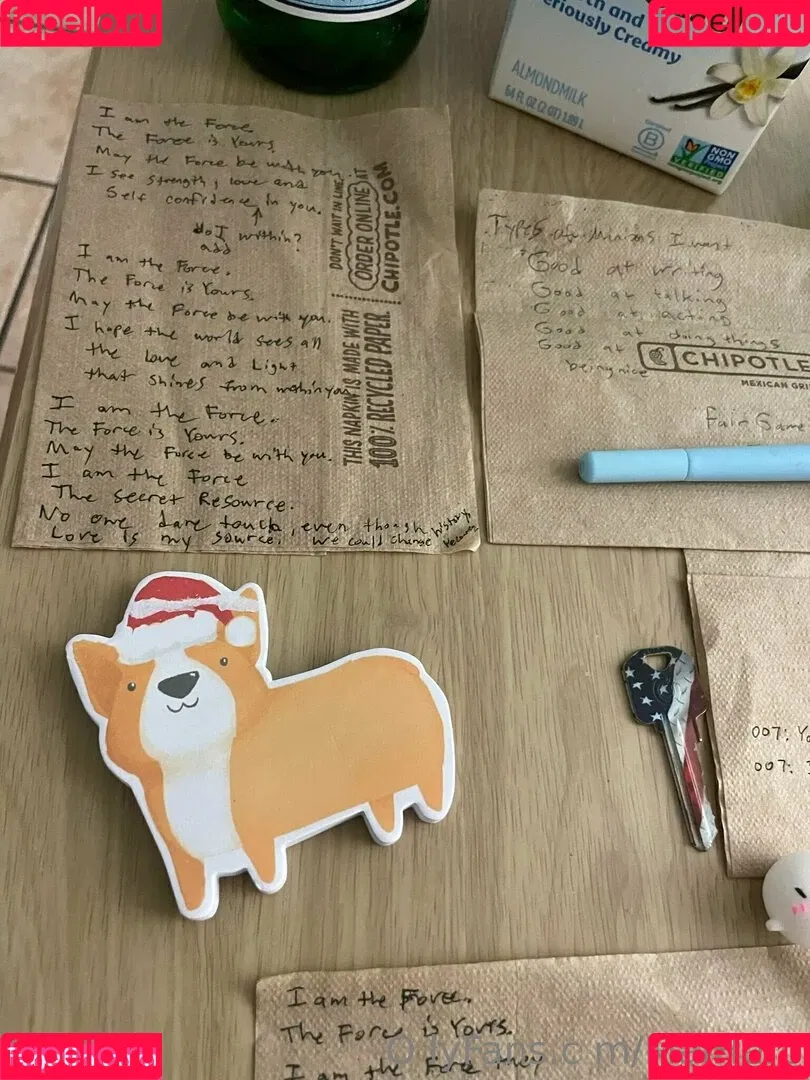 fapello.ru
fapello.ru
th and
eriously Creamy
ALMONDMILK
64 FL OZ (2 QT) 1.89 L
B
NON
GMO
VERIFIED
I am the Force.
The Force is Yours.
May the Force be with you.
I see strength, love and
Self confidence in you.
do I within?
add
I am the Force.
The Force is Yours.
May the Force be with you.
I hope the world sees all
the love and Light
that shines from within you
I am the Force.
The Force is Yours.
May the Force be with you.
I am the Force
The Secret Resource.
No one dare touch, even though
Love is my source. We could change history
DON'T WAIT IN LINE
ORDER ONLINE AT
CHIPOTLE.COM
THIS NAPKIN IS MADE WITH
100% RECYCLED PAPER
Types of Minions I want
Good at writing
Good at talking
Good at acting
Good at doing things
Good at
being nice
CHIPOTLE
MEXICAN GRI
Fair Game
007: Yo
007:
I am the Force.
The Force is Yours.
I am the Force They
fapello.ru
fapello.ru